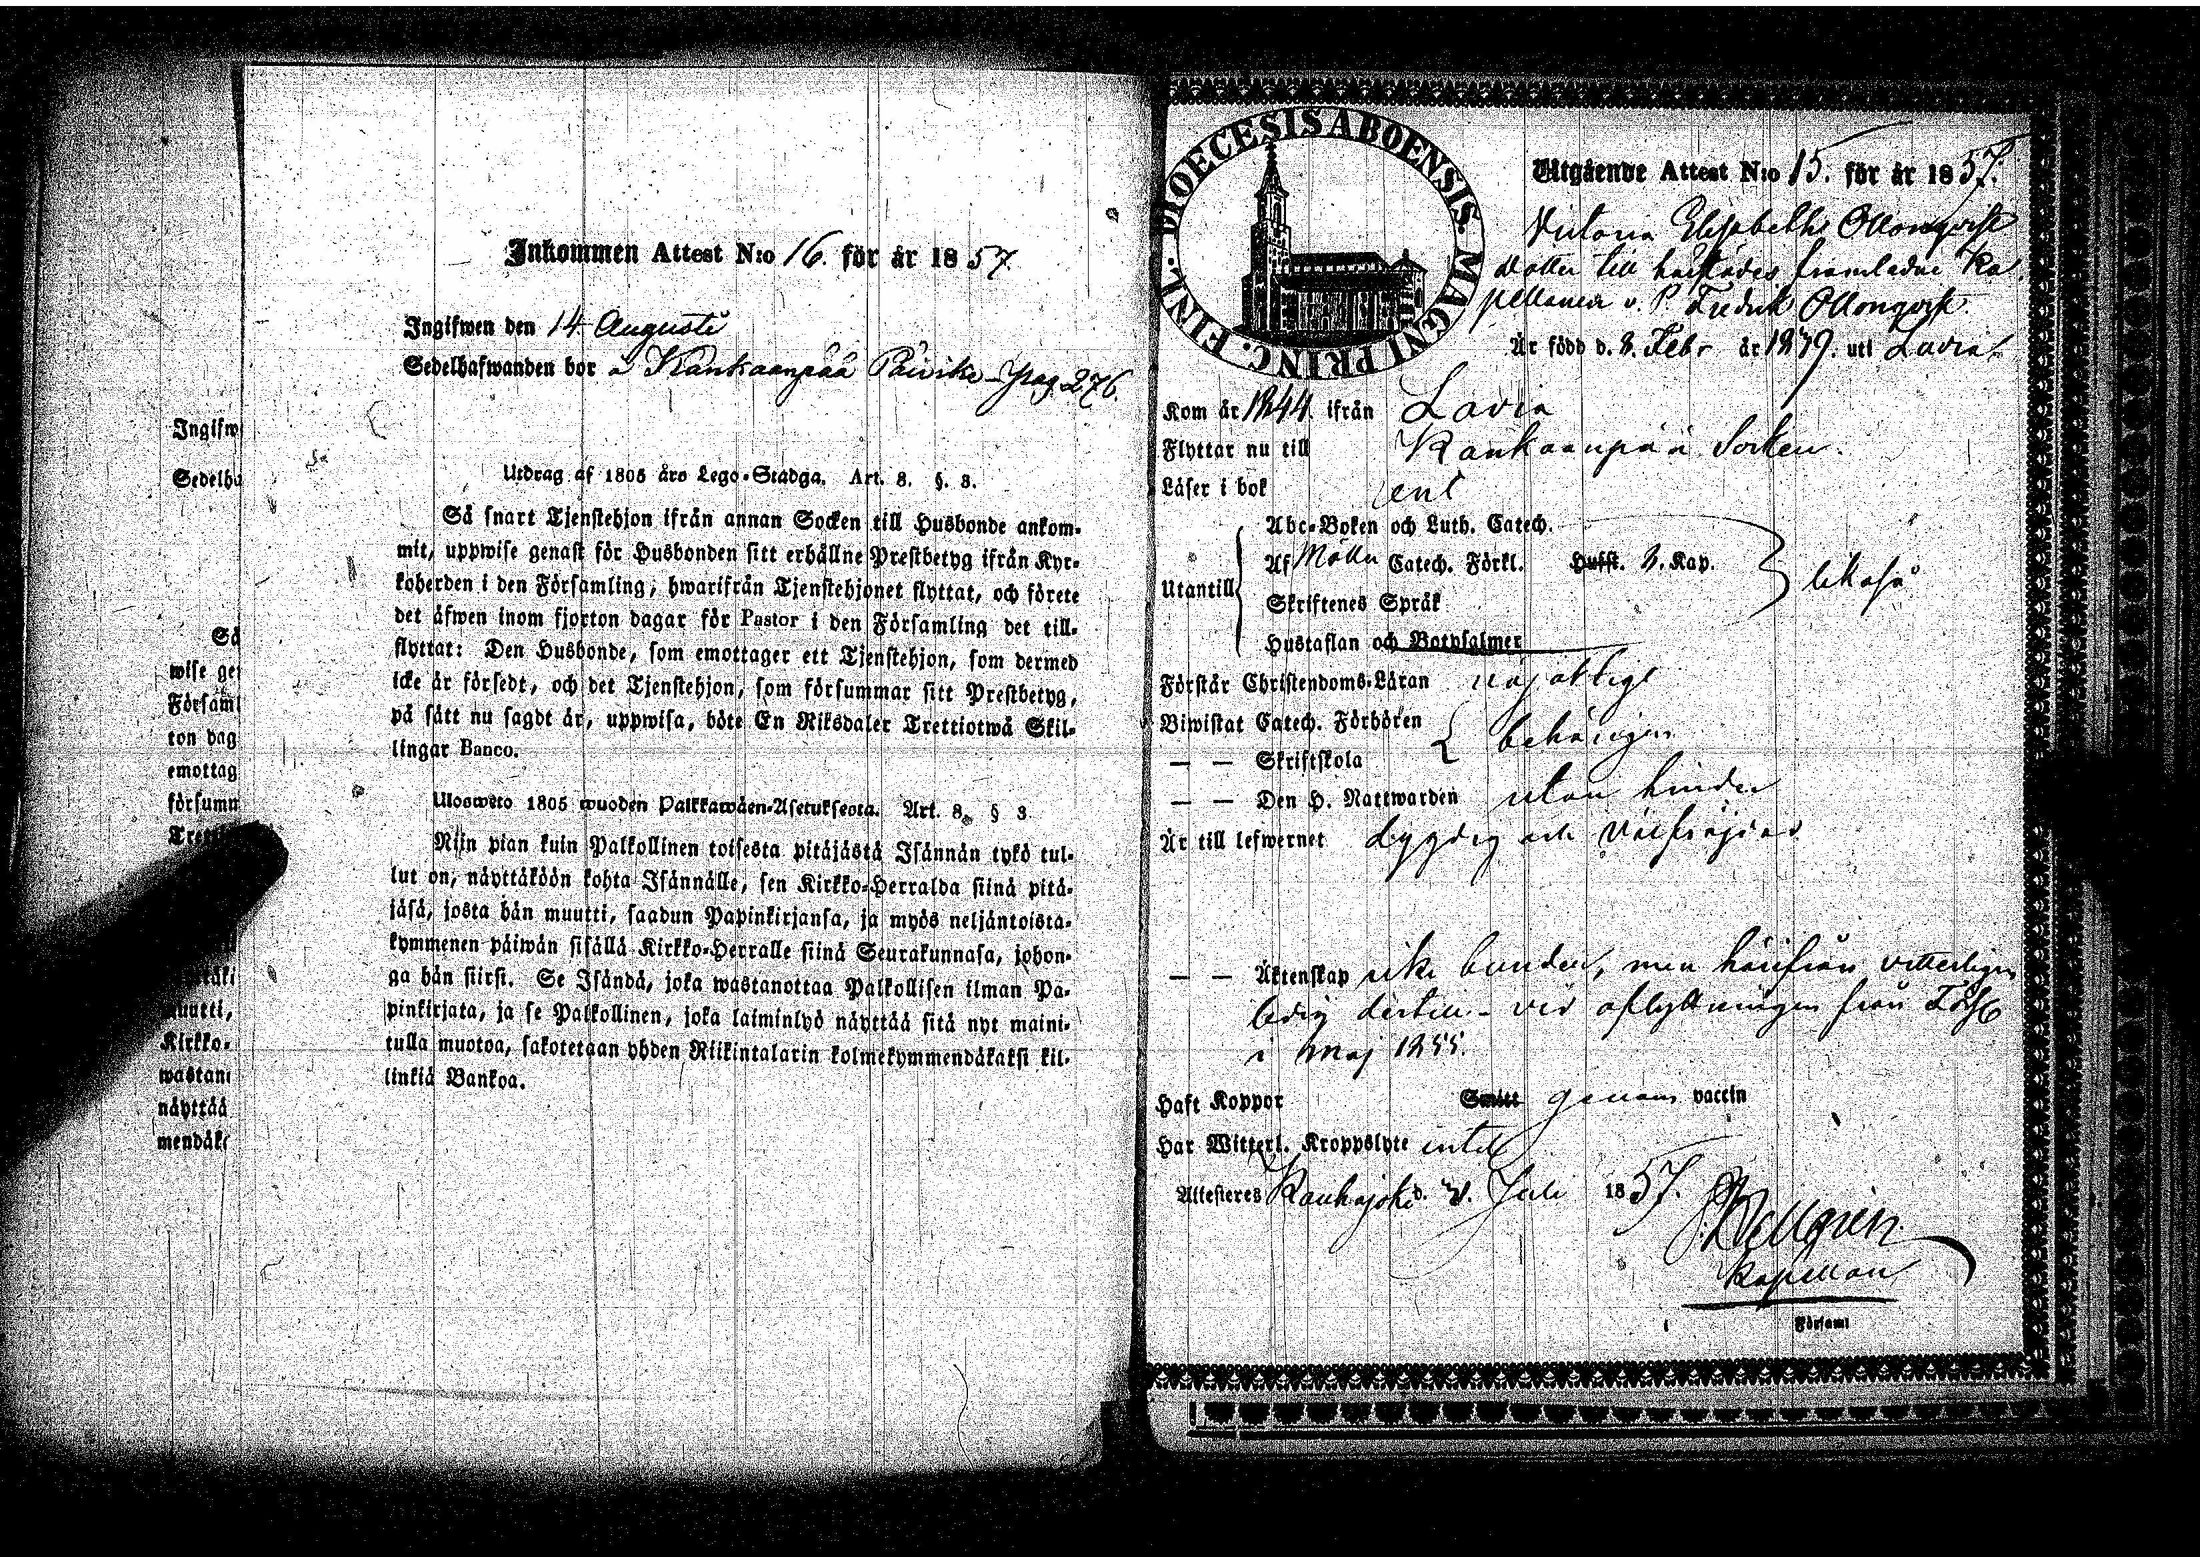 Ingifw
Sedelha
Så
wise ge
Församl
ton dag
emottag
försumm
Kirkko-
wastan
näyttää
mendäk
Inkommen Attest N:o 16. för år 1857.
Ingifwen den 14 Augusti
Sedelhafwanden bor å Kankaanpää pag. 276.
Utdrag af 1805 års Lego-Stadga. Art. 8. §. 3.
Så snart Tjenstehjon ifrån annan Socken till Husbonde ankom-
mit, uppwise genast för Husbonden sitt erhållne Prestbetyg ifrån Kyr-
koherden i den Församling, hwarifrån Tjenstehjonet flyttat, och förete
det äfwen inom fjorton dagar för Pastor i den Församling det till-
flyttat: Den Husbonde, som emottager ett Tjenstehjon, som dermed
icke är försedt, och det Tjenstehjon, som försummar sitt Prestbetyg,
på sätt nu sagdt är, uppwisa, böte En Riksdaler Trettiotwå Skil-
lingar Banco.
Ulosweto 1805 wuoden Palkkawäen-Asetuksesta. Art. 8. § 3
Niin pian kuin Palkollinen toisesta pitäjästä Isännän tykö tul-
lut on, näyttäköön kohta Isännälle, sen Kirkko-Herralda siinä pitä-
jäsä, josta hän muutti, saadun Papinkirjansa, ja myös neljäntoista-
kymmenen päiwän sisällä Kirkko-Herralle siinä Seurakunnasa, johon-
ga hän siirsi. Se Isändä, joka wastanottaa Palkollisen ilman Pa-
pinkirjata, ja se Palkollinen, joka laiminlyö näyttää sitä nyt maini-
tulla muotoa, sakotetaan yhden Riikintalarin kolmekymmendäkaksi kil-
linkiä Bankoa.
DIOECESIS ABOENSIS. MAGNI PRINC. FINL.
Utgående Attest N:o 15. för år 1857.
Victoria Elisabeth Ollonqvist
dotter till härstädes framledne Ka-
pellanen v. P. Fredrik Ollonqvist.
Är född d. 8. Febr år 1839. uti Lavia
Kom år 1844. ifrån Lavia
Flyttar nu till Kankaanpää Socken.
Läser i bok rent
Utantill
Abc-Boken och Luth. Catech.
Af Catech. Förkl. Husst. 8. Kap. likaså
Skriftenes Språk
Hustaflan och Botpsalmer
Förstår Christendoms-Läran nöjaktigt
Biwistat Catech. Förhören behörigen
— — Skriftskola
— — Den H. Nattwarden utan hinder
Är till lefwernet dygdig och välfräjdad
— — Äktenskap icke bunden, men härifrån vetterligen
ledig dertill - vid afflyttningen från
i Maj 1855.
Haft Koppor Smitt genom vaccin
Har Witterl. Kroppslyte intet
Attesteres Kauhajoki d. Juli 1857.
Kapellan
Församl